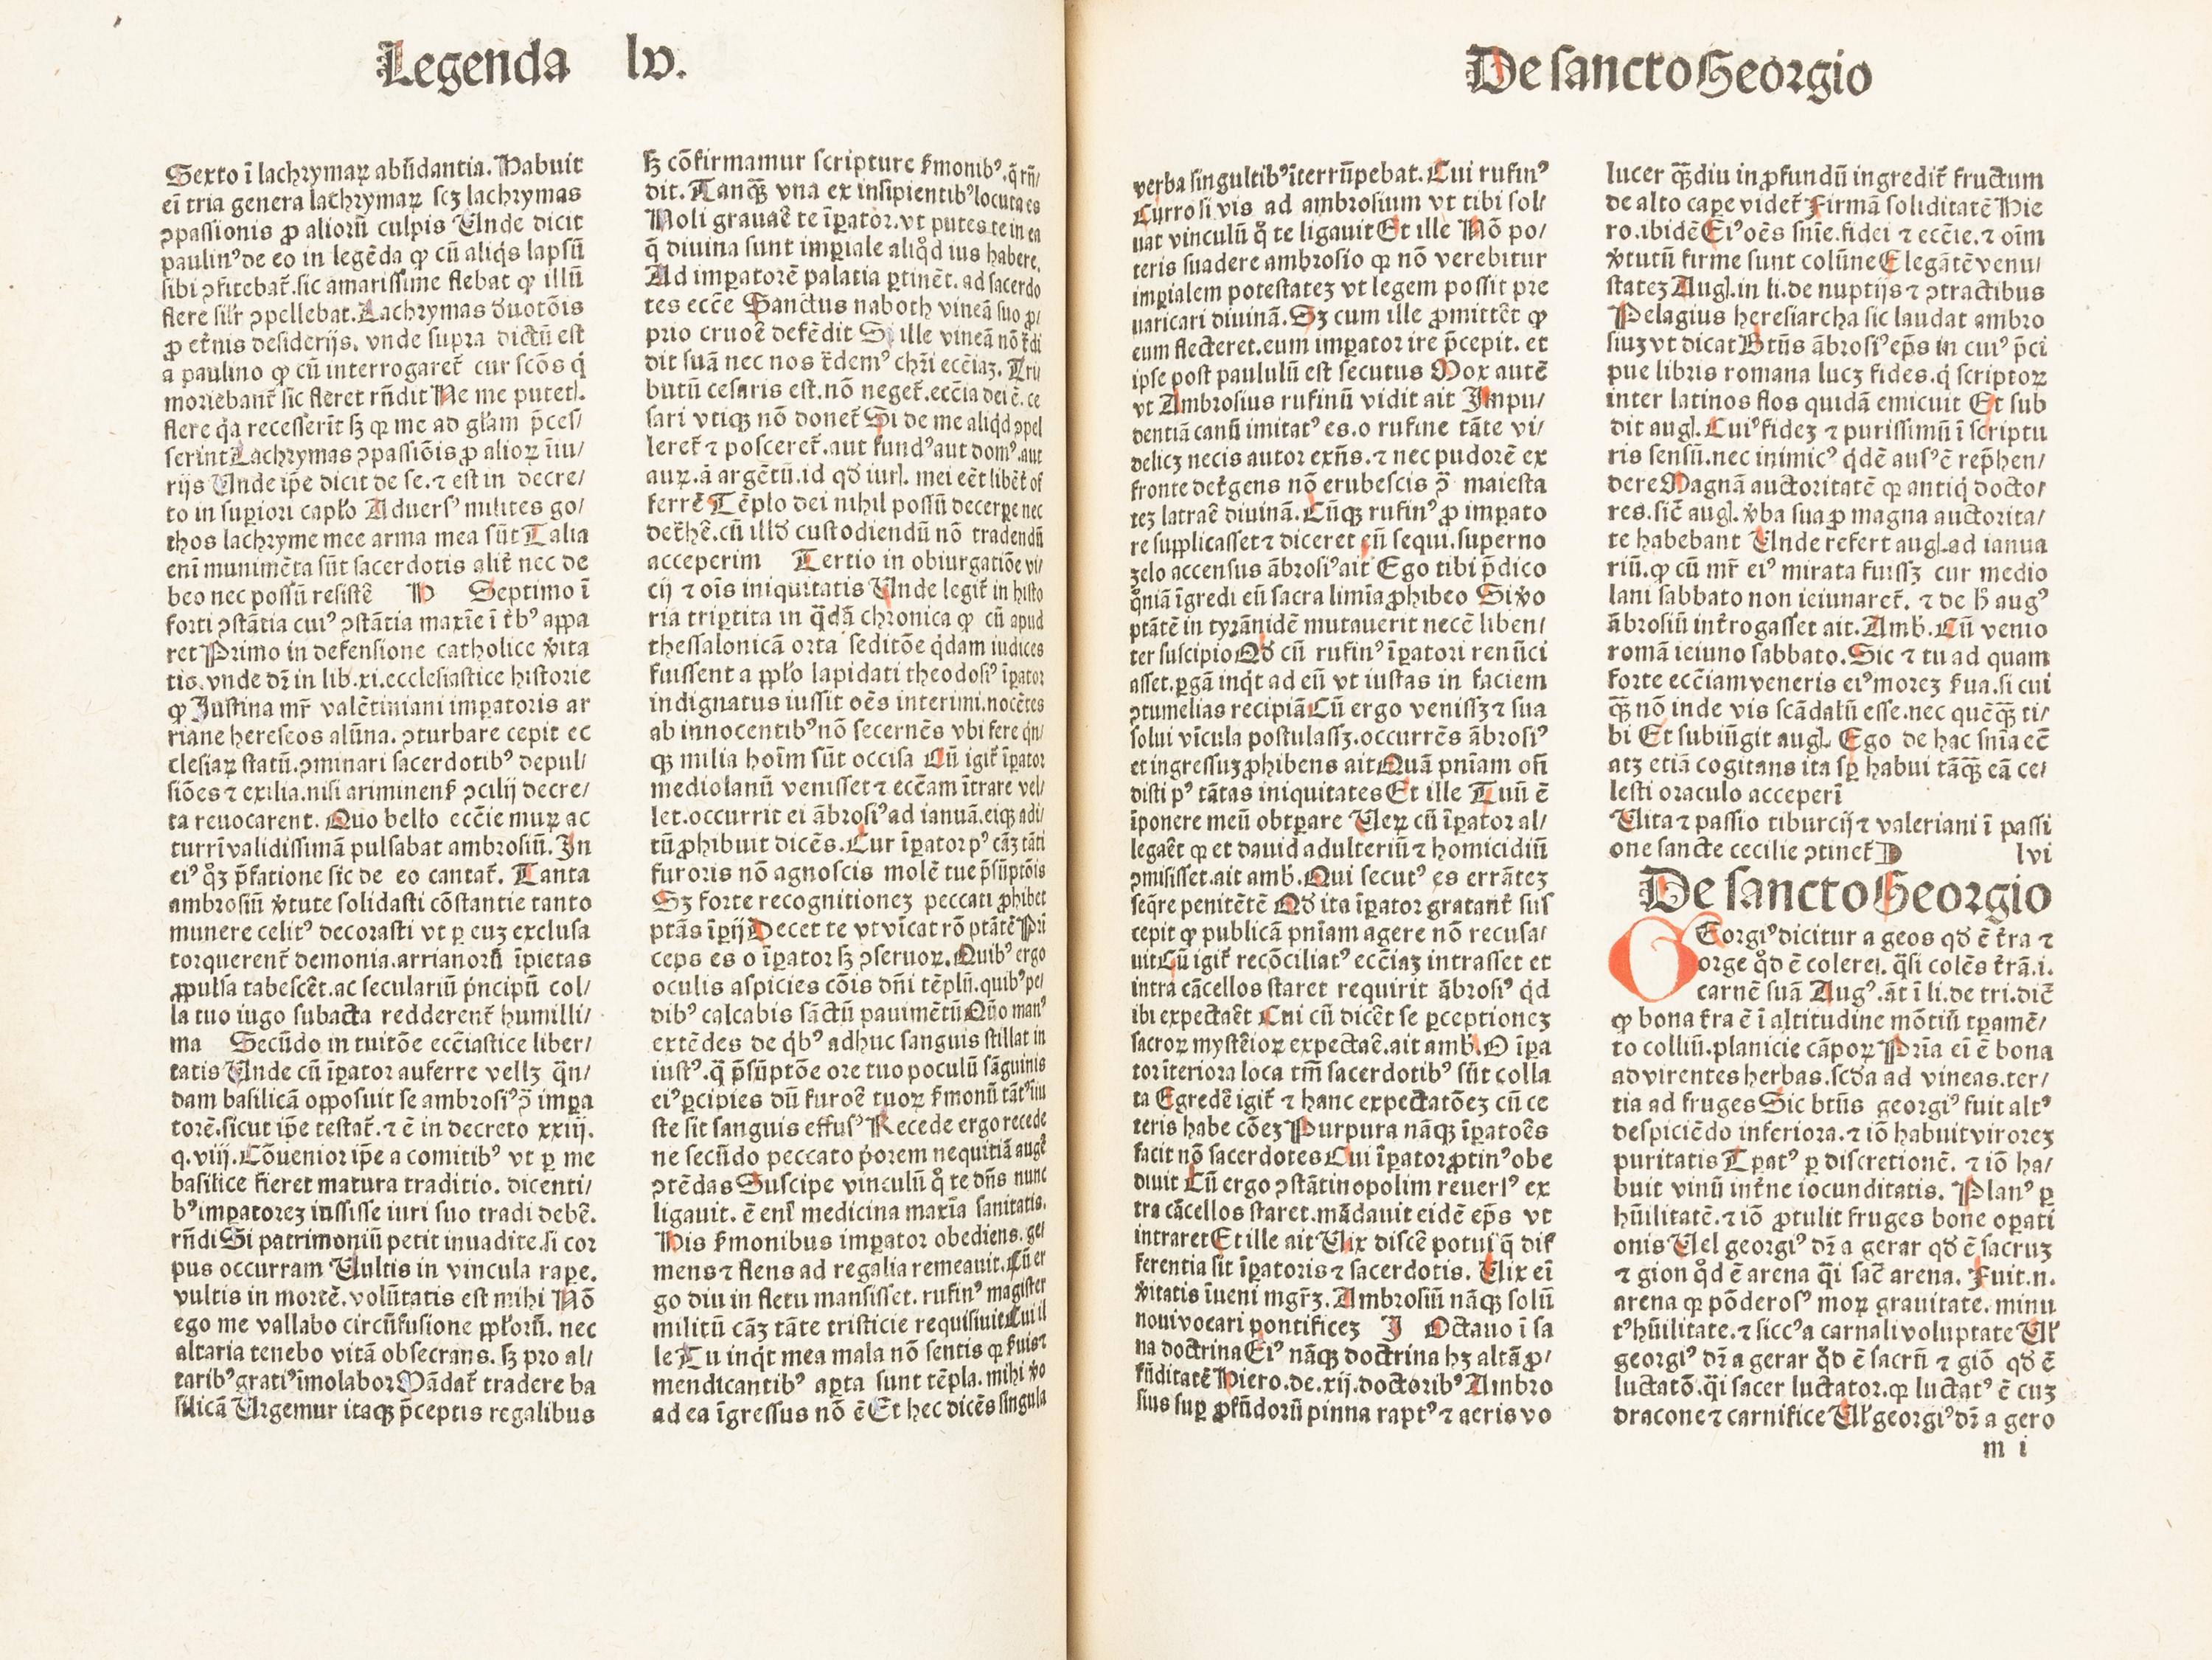 Legenda lv.
Sexto ī lachrymaꝝ abūdantia. Habuit
eī tria genera lachrymaꝝ scꝫ lachrymas
ꝯpassionis ꝓ aliorū culpis Unde dicit
paulinꝰ de eo in legēda ꝙ cū aliq̄s lapsū
sibi ꝯfitebat᷑. sic amarissime flebat ꝙ illū
flere sil'r ꝯpellebat. Lachrymas d̓uotōis
ꝓ et̓nis desiderijs. vnde supra dictū est
a paulino ꝙ cū interrogaret᷑ cur scōs q̇
moriebant᷑ sic fleret rn̄dit Ne me putetꝭ.
flere q̇a recesserīt sꝫ qꝛ me ad gl'am p̄ces/
serint Lachrymas ꝯpassiōis ꝓ alioꝝ iniu/
rijs Unde ip̄e dicit de se. ⁊ est in decre/
to in suꝑiori capl'o Aduersꝰ milites go/
thos lachryme mee arma mea sūt Talia
enī munimēta sūt sacerdotis alit̓ nec de
beo nec possū resistē H Septimo ī
forti ꝯstātia cuiꝰ ꝯstātia maxīe ī t̓bꝰ appa
ret Primo in defensione catholice v̓ita
tis. vnde dꝛ̄ in lib. xi. ecclesiastice historie
ꝙ Justina mr̄ valētiniani imꝑatoris ar
riane hereseos alūna. ꝯturbare cepit ec
clesiaꝝ statū. ꝯminari sacerdotibꝰ depul/
siōes ⁊ exilia. nisi ariminens̓ ꝯcilij decre/
ta reuocarent. Quo bello eccēie muꝝ ac
turrī validissimā pulsabat ambrosiū. In
eiꝰ q̊ꝫ p̄fatione sic de eo cantat᷑. Tanta
ambrosiū v̓tute solidasti cōstantie tanto
munere celitꝰ decorasti vt ꝑ euꝫ exclusa
torquerent᷑ demonia. arrianorū īpietas
ꝓpulsa tabescēt. ac seculariū pṅcipū col/
la tuo iugo subacta redderent᷑ humilli/
ma Secūdo in tuitōe eccēiastice liber/
tatis Unde cū īꝑator auferre vellꝫ q̄n/
dam basilicā opposuit se ambrosiꝰ ꝯ̄ imꝑa
torē. sicut ip̄e testat᷑. ⁊ ē in decreto xxiij.
q. viij. Cōuenior ip̄e a comitibꝰ vt ꝑ me
basilice fieret matura traditio. dicenti/
bꝰ imꝑatoreꝫ iussisse iuri suo tradi debē.
rn̄di Si patrimoniū petit inuadite. si cor
pus occurram Uultis in vincula rape.
vultis in mortē. volūtatis est mihi Nō
ego me vallabo circūfusione ppl'orū. nec
altaria tenebo vitā obsecrans. sꝫ pro al/
taribꝰ gratiꝰ īmolabor Mādat᷑ tradere ba
silicā Urgemur itaqꝫ p̄ceptis regalibus
sꝫ cōfirmamur scripture s̓monibꝰ. q̄ rn̄/
dit. Tanqꝫ̄ vna ex insipientibꝰ locuta es
Noli grauaē te īꝑator. vt putes te in ea
q̄ diuina sunt imꝑiale aliq̊d ius habere.
Ad imꝑatorē palatia ꝑtinēt. ad sacerdo
tes eccēe Sanctus naboth vineā suo ꝓ/
prio cruoē defēdit Si ille vineā nō t̓di
dit suā nec nos t̓demꝰ chri̓ eccēiaꝫ. Tri
butū cesaris est. nō neget᷑. eccēia dei ē. ce
sari vtiqꝫ nō donet᷑ Si de me aliq̇d ꝯpel
leret᷑ ⁊ posceret᷑. aut fundꝰ aut domꝰ. aut
auꝝ. ā argētū. id qd̓ iurꝭ. mei eēt libēt̓ of
ferrē Tēplo dei nihil possū decerpe nec
det̓hē. cū illd̓ custodiendū nō tradendū
acceperim Tertio in obiurgatiōe vi/
cij ⁊ oīs iniquitatis Unde legit᷑ in histo
ria triptita in q̄dā chronica ꝙ cū apud
thessalonicā orta seditōe q̇dam iudices
fuissent a ppl'o lapidati theodosiꝰ īꝑator
indignatus iussit oēs interimi. nocētes
ab innocentibꝰ nō secernēs vbi fere q̇n/
qꝫ milia hoīm sūt occisa Cū igit᷑ īꝑator
mediolanū venisset ⁊ eccēam ītrare vel/
let. occurrit ei ābrosiꝰ ad ianuā. eiqꝫ adi/
tū ꝓhibuit dicēs. Cur īꝑator pꝰ cāꝫ tāti
furoris nō agnoscis molē tue p̄sūptōis
Sꝫ forte recognitioneꝫ peccati ꝓhibet
ptās īꝑij Decet te vt vīcat rō ptātē Pri
ceps es o īꝑator sꝫ ꝯseruoꝝ. Quibꝰ ergo
oculis aspicies cōis dn̄i tēplū. quibꝰ pe/
dibꝰ calcabis sāctū pauimētū Quo manꝰ
extēdes de q̇bꝰ adhuc sanguis stillat in
iustꝰ. q̄ p̄sūptōe ore tuo poculū sāguinis
eiꝰ ꝑcipies dū furoē tuoꝝ s̓monū tātꝰ iniu
ste sit sanguis effusꝰ Recede ergo recede
ne secūdo peccato ṗorem nequitiā augē
ꝯtēdas Suscipe vinculū q̊ te dn̄s nunc
ligauit. ē enī medicina maxīa sanitatis.
His s̓monibus imꝑator obediens. ge/
mens ⁊ flens ad regalia remeauit. Cū er
go diu in fletu mansisset. rufinꝰ magister
militū cāꝫ tāte tristicie requisiuit Cui il
le Tu inq̇t mea mala nō sentis qꝛ s̓uis ⁊
mendicantibꝰ aꝑta sunt tēpla. mihi v̓o
ad ea īgressus nō ē Et hec dicēs singula
De sancto Georgio
verba singultibꝰ īterrūpebat. Cui rufinꝰ
Curro si vis ad ambrosium vt tibi sol/
uat vinculū q̊ te ligauit Et ille Nō po/
teris suadere ambrosio qꝛ nō verebitur
imꝑialem potestateꝫ vt legem possit pre
uaricari diuinā. Sꝫ cum ille ꝓmittēt ꝙ
eum flecteret. eum imꝑator ire p̄cepit. et
ipse post paululū est secutus Mox autē
vt Ambrosius rufinū vidit ait Impu/
dentiā canū imitatꝰ es. o rufine tāte vi/
delicꝫ necis autor exn̄s. ⁊ nec pudorē ex
fronte det̓gens nō erubescis ꝯ̄ maiesta
teꝫ latraē diuinā. Cūqꝫ rufinꝰ ꝓ imꝑato
re supplicasset ⁊ diceret eū sequi. superno
zelo accensus ābrosiꝰ ait Ego tibi p̄dico
q̊niā īgredi eū sacra limīa ꝓhibeo Si v̓o
ptātē in tyrānidē mutauerit necē liben/
ter suscipio Qd̓ cū rufinꝰ īꝑatori renūci
asset. ꝑgā inq̇t ad eū vt iustas in faciem
ꝯtumelias recipiā Cū ergo venissꝫ ⁊ sua
solui vīcula postulassꝫ. occurrēs ābrosiꝰ
et ingressuꝫ ꝓhibens ait Quā pnīam osn̄
disti pꝰ tātas iniquitates Et ille Tuū ē
īponere meū obtꝑare Ueꝝ cū īꝑator al/
legaēt ꝙ et dauid adulteriū ⁊ homicidiū
ꝯmisisset. ait amb. Qui secutꝰ es errāteꝫ
seq̄re penitētē Qd̓ ita īꝑator gratant̓ sus
cepit ꝙ publicā pnīam agere nō recusa/
uit Cū igit᷑ recōciliatꝰ eccēiaꝫ intrasset et
intra cācellos staret requirit ābrosiꝰ q̇d
ibi expectaēt Cui cū dicēt se ꝑceptioneꝫ
sacroꝝ mystēioꝝ expectaē. ait amb. O īꝑa
tor īteriora loca tm̄ sacerdotibꝰ sūt colla
ta Egredē igit᷑ ⁊ hanc expectatōeꝫ cū ce
teris habe cōeꝫ Purpura nāqꝫ īꝑatoēs
facit nō sacerdotes Cui īꝑator ꝓtinꝰ obe
diuit Cū ergo ꝯstātinopolim reuersꝰ ex
tra cācellos staret. mādauit eidē ep̄s vt
intraret Et ille ait Uix discē potui q̄ dif
ferentia sit īꝑatoris ⁊ sacerdotis. Uix eī
v̓itatis īueni mgr̄ꝫ. Ambrosiū nāqꝫ solū
noui vocari pontificeꝫ J Octauo ī sa
na doctrina Eiꝰ nāqꝫ doctrina hꝫ altā ꝓ/
fūditatē Hiero. de. xij. doctoribꝰ Ambro
sius suꝑ ꝓfūdorū pinna raptꝰ ⁊ aeris vo
lucer qꝫ̄diu in ꝓfundū ingredit᷑ fructum
de alto capē videt᷑ Firmā soliditatē Hie
ro. ibidē Eiꝰ oēs snīe. fidei ⁊ eccēie. ⁊ oīm
v̓tutū firme sunt colūne Elegātē venu/
stateꝫ Augꝭ. in li. de nuptijs ⁊ ꝯtractibus
Pelagius heresiarcha sic laudat ambro
siuꝫ vt dicat Btūs ābrosiꝰ ep̄s in cuiꝰ p̄ci
pue libris romana lucꝫ fides. q̇ scriptoꝝ
inter latinos flos quidā emicuit Et sub
dit augꝭ. Cuiꝰ fideꝫ ⁊ purissimū ī scriptu
ris sensū. nec inimicꝰ q̇dē ausꝰ ē rep̄hen/
dere Magnā auctoritatē qꝛ antiq̇ docto/
res. sic̄ augꝭ. v̓ba sua ꝓ magna auctorita/
te habebant Unde refert augꝭ. ad ianua
riū. ꝙ cū mr̄ eiꝰ mirata fuissꝫ cur medio
lani sabbato non ieiunaret᷑. ⁊ de h̓ augꝰ
ābrosiū int̓rogasset ait. Amb. Cū venio
romā ieiuno sabbato. Sic ⁊ tu ad quam
forte eccēiam veneris eiꝰ moreꝫ s̓ua. si cui
qꝫ̄ nō inde vis scādalū esse. nec quēqꝫ̄ ti/
bi Et subiūgit augꝭ. Ego de hac snīa ec̄
atꝫ etiā cogitans ita sꝑ habui tāqꝫ̄ eā ce/
lesti oraculo acceperī
Uita ⁊ passio tiburcij ⁊ valeriani ī passi
one sancte cecilie ꝯtinet᷑ lvi
De sancto Georgio
GEorgiꝰ dicitur a geos qd̓ ē t̓ra ⁊
orge q̊d ē colereꝭ. q̄si colēs t̓rā. i.
carnē suā Augꝰ. āt ī li. de tri. dic̄
ꝙ bona t̓ra ē ī altitudine mōtiū tꝑamē/
to colliū. planicie cāpoꝝ Pria eī ē bona
ad virentes herbas. scd̓a ad vineas. ter/
tia ad fruges Sic btūs georgiꝰ fuit altꝰ
despiciēdo inferiora. ⁊ iō habuit viroreꝫ
puritatis Tꝑatꝰ ꝑ discretionē. ⁊ iō ha/
buit vinū int̓ne iocunditatis. Planꝰ ꝑ
hūilitatē. ⁊ iō ꝓtulit fruges bone oꝑati
onis Uel georgiꝰ dꝛ̄ a gerar qd̓ ē sacruꝫ
⁊ gion q̊d ē arena q̄i sac̄ arena. Fuit. n.
arena qꝛ pōderosꝰ moꝝ grauitate. minu
tꝰ hūilitate. ⁊ siccꝰ a carnali voluptate Ul̓
georgiꝰ dꝛ̄ a gerar q̊d ē sacrū ⁊ giō qd̓ ē
luctatō. q̄i sacer luctator. qꝛ luctatꝰ ē cuꝫ
dracone ⁊ carnifice Ul̓ georgiꝰ dꝛ̄ a gero
m i